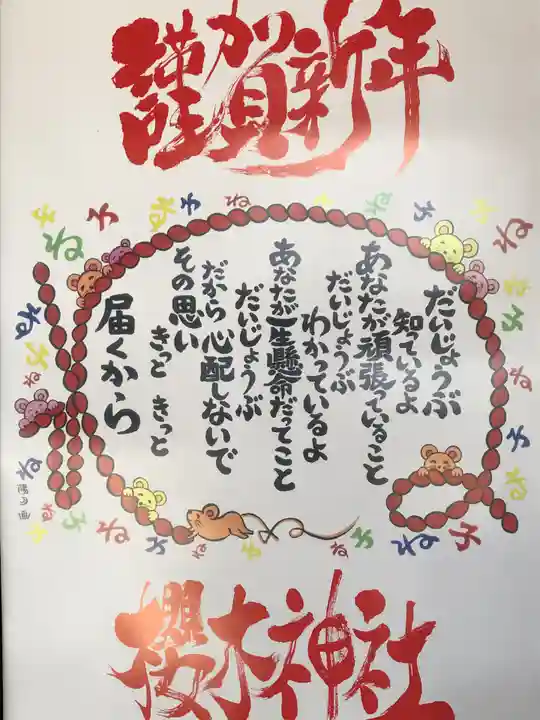 謹賀新年
だいじょうぶ
知ているよ
あなたが頑張っていること
だいじょうぶ
わかっているよ
あなたが一生懸命だってこと
だいじょうぶ
だから心配しないで
その思い
きっと きっと
届くから
櫻木神社